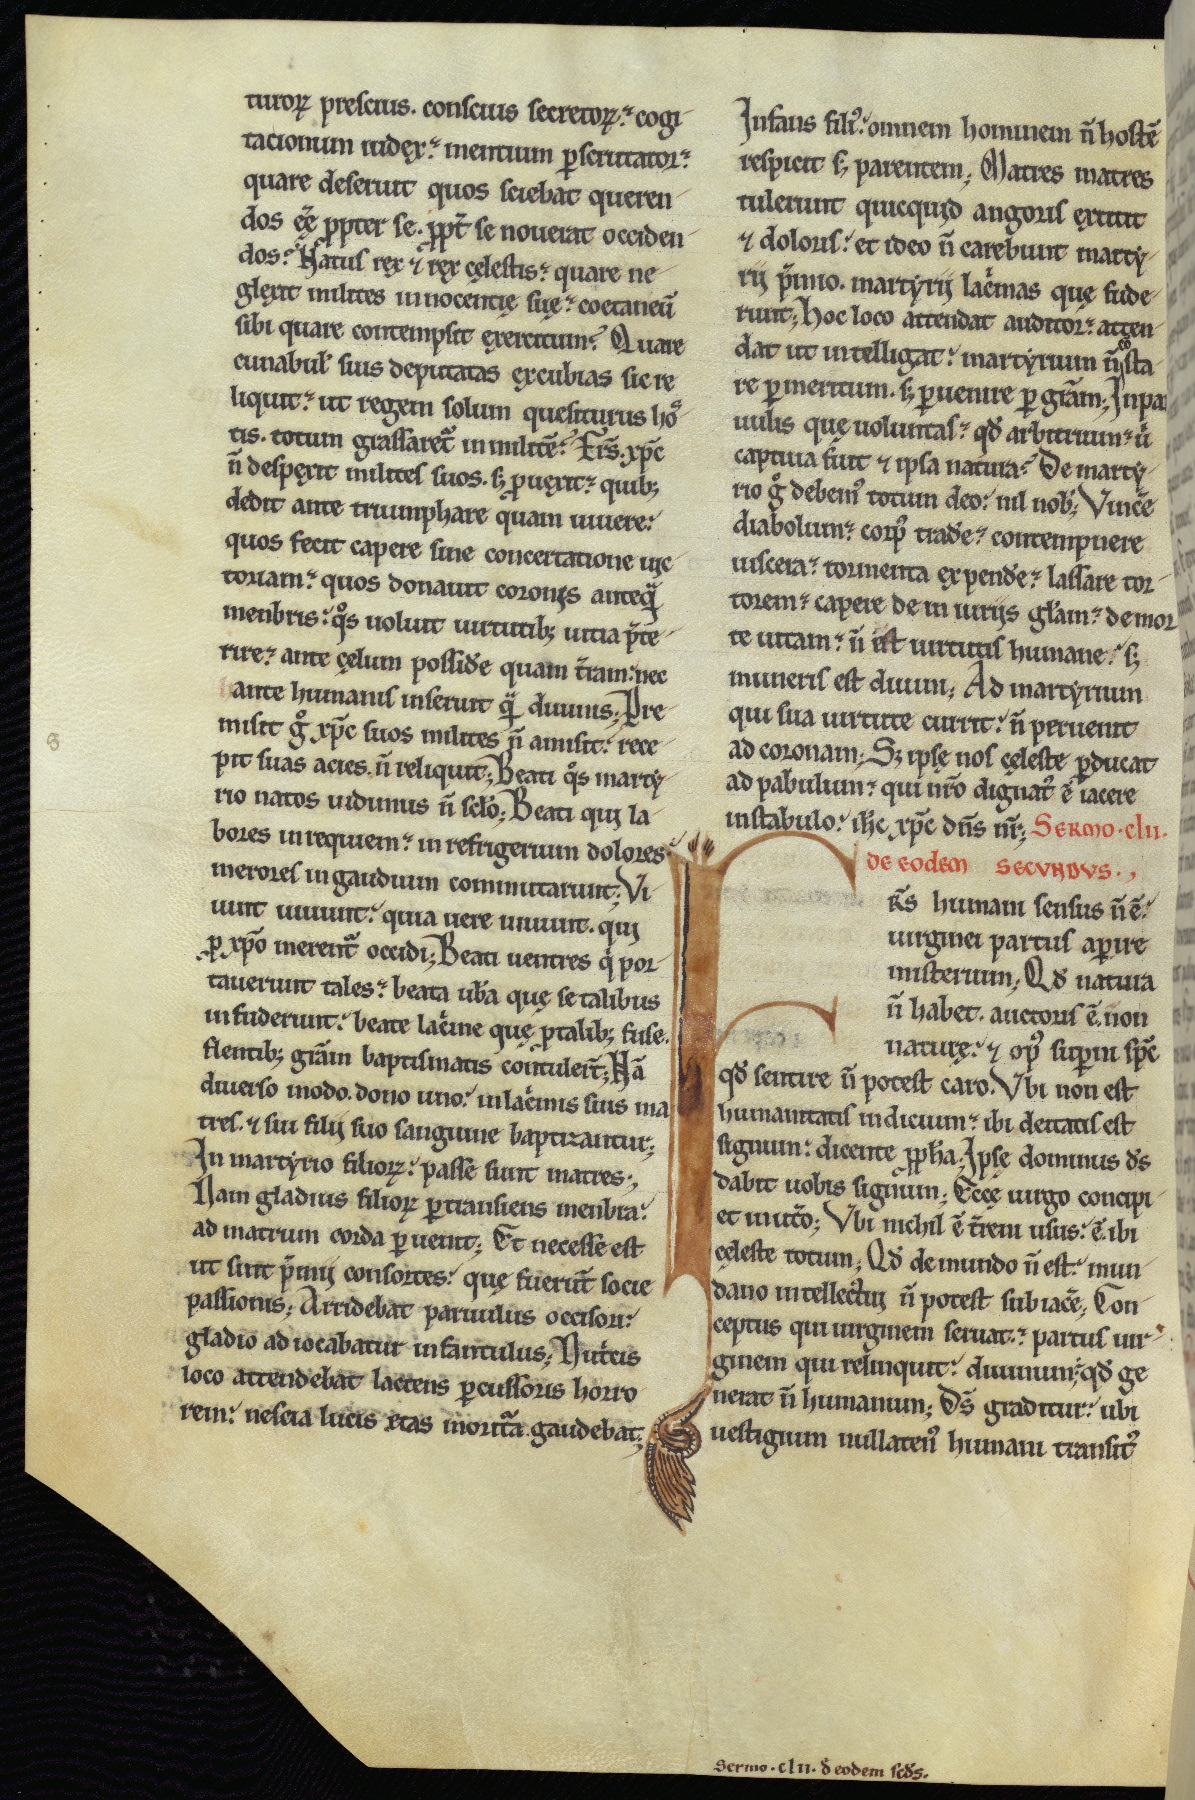 turoꝝ prescius. conscius secretoꝝ. cogi
tacionum iudex. mentium ꝑscrutator.
quare deseruit quos sciebat queren
dos eę̄ ꝓpter se. ꝓpt̄ se nouerat occiden
dos. Natus rex ⁊ rex cęlestis. quare ne
glexit milites innocentię suę. coetaneū
sibi quare contempsit exercitum. Quare
cunabul' suis deputatas excubias sic re
liquit. ut regem solum quesiturus hoͦ
tis. totum grassaret᷑ in militē. Fr̄s. xp̄c
n̄ despexit milites suos. sꝫ ꝓuexit. quibꝫ
dedit ante triumphare quam uiuere.
quos fecit capere sine concertatione uic
toriam. quos donauit coronis anteqͣ̄
menbris. qͦs uoluit uirtutibꝫ uitia p̄te
rire. ante cęlum possidē quam t̄ram. nec
ante humanis inseruit qͣ̄ diuinis; Pre
misit gͦ xp̄c suos milites n̄ amisit. rece
pit suas acies. n̄ reliquit; Beati qͦs marty
rio natos uidimus n̄ sclō; Beati qui la
bores in requiem. in refrigerium dolores
merores in gaudium commutarunt; Vi
uunt uiuunt. quia uere uiuunt. qui
ꝓ xp̄o merent᷑ occidi; Beati uentres qͥ por
tauerunt tales. beata ub̄a quę se talibus
infuderunt. beate lac̄me quę ꝓ talibꝫ fuse.
flentibꝫ grām baptismatis contuler̄t; Nā
diuerso modo. dono uno. in lac̄mis suis ma
tres. ⁊ sui filii suo sanguine baptizantur;
In martyrio filioꝝ. passe sunt matres.,
Nam gladius filioꝝ ꝑtransiens menbra.
ad matrum corda ꝑuenit; Et necesse est
ut sint p̄mii consortes. quę fuerūt socie
passionis; Arridebat paruulus occisori.
gladio adiocabatur infantulus; Nut̄cis
loco attendebat lactens ꝑcussoris horro
rem. nescia lucis etas moritᷓa gaudebat;
Infans filiꝰ. omnem hominem n̄ hostē
respicit sꝫ parentem; Matres matres
tulerunt quicquid angoris extitit
⁊ doloris. et ideo n̄ carebunt marty
rii p̄mio. martyrii lac̄mas quę fude
runt; Hoc loco attendat auditor. atten
dat ut intelligat. martyrium n̄ cōsta
re ꝑ meritum. sꝫ ꝑuenire ꝑ grām; In par
uulis quę uoluntas. qd̄ arbitrium. uͥ
captiua fuit ⁊ ipsa natura. De marty
rio gͦ debemꝰ totum deo. nil nob̄; Vincē
diabolum. corpꝰ tradē. contempnere
uiscera. tormenta expendē. lassare tor
torem. capere de in iuriis glām. de mor
te uitam. n̄ est uirtutis humane. sꝫ
muneris est diuini; Ad martyrium
qui sua uirtute currit. n̄ peruenit
ad coronam; Sꝫ ipse nos cęleste ꝑducat
ad pabulum. qui nr̄o dignat᷑ ē iacere
in stabulo. ih̄c xp̄c dn̄s nr̄; Sermo. clii.
de eodem secvndvs.,
F
R̄s humani sensus n̄ ē.
uirginei partus aperire
misterium; Qd̄ natura
n̄ habet. auctoris ē non
naturę. ⁊ opꝰ superni sp̄c
qd̄ sentire n̄ potest caro. Vbi non est
humanitatis indicium. ibi deitatis est
signum. dicente ꝓph̄a; Ipse dominus d̄s
dabit uobis signum; Ecce uirgo concipi
et in utō; Vbi nichil ē t̄reni usus. ē ibi
cęleste totum; Qd̄ de mundo n̄ est. mun
dano intellectui n̄ potest subiacē; Con
ceptus qui uirginem seruat. partus uir
ginem qui relinquit. diuinum. qd̄ ge
nerat n̄ humanum; D̄s graditur. ubi
uestigium nullatenꝰ humani transitꝰ
Sermo. clii. d̄ eodem sc̄ds.